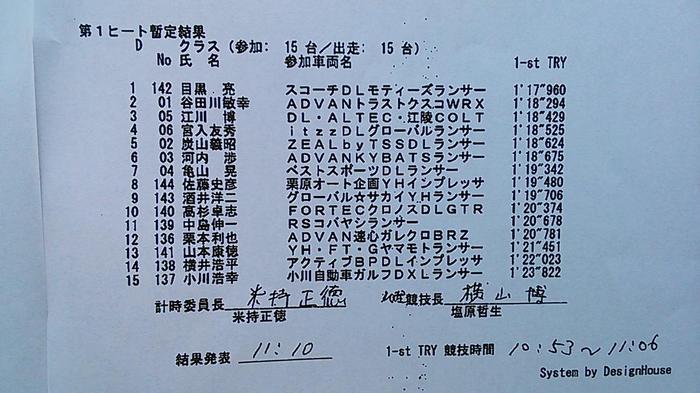 第1ヒート暫定結果
D クラス (参加: 15 台/出走: 15 台)
No 氏 名 参加車両名 1-st TRY
1 142 目黒 亮 スコーチDLモティーズランサー 1'17"960
2 01 谷田川敏幸 ADVANトラストクスコWRX 1'18"294
3 05 江川 博 DL・ALTEC・江陵COLT 1'18"429
4 06 宮入友秀 itzzDLグローバルランサー 1'18"525
5 02 炭山義昭 ZEALbyTSSDLランサー 1'18"624
6 03 河内 渉 ADVANKYBATSランサー 1'18"675
7 04 亀山 晃 ベストスポーツDLランサー 1'19"342
8 144 佐藤史彦 栗原オート企画YHインプレッサ 1'19"480
9 143 酒井洋二 グローバル☆サカイYHランサー 1'19"706
10 140 高杉卓志 FORTECクロノスDLGTR 1'20"374
11 139 中島伸一 RSコバヤシランサー 1'20"678
12 136 栗本利也 ADVAN速心ガレクロBRZ 1'20"781
13 141 山本康徳 YH・FT・Gヤマモトランサー 1'21"451
14 138 横井浩平 アクティブBPDLインプレッサ 1'22"023
15 137 小川浩幸 小川自動車ガルフDXLランサー 1'23"822
計時委員長 米持正徳 競技長 横山 博
米持正徳 塩原哲生
結果発表 11:10 1-st TRY 競技時間 10:53~11:06
System by DesignHouse